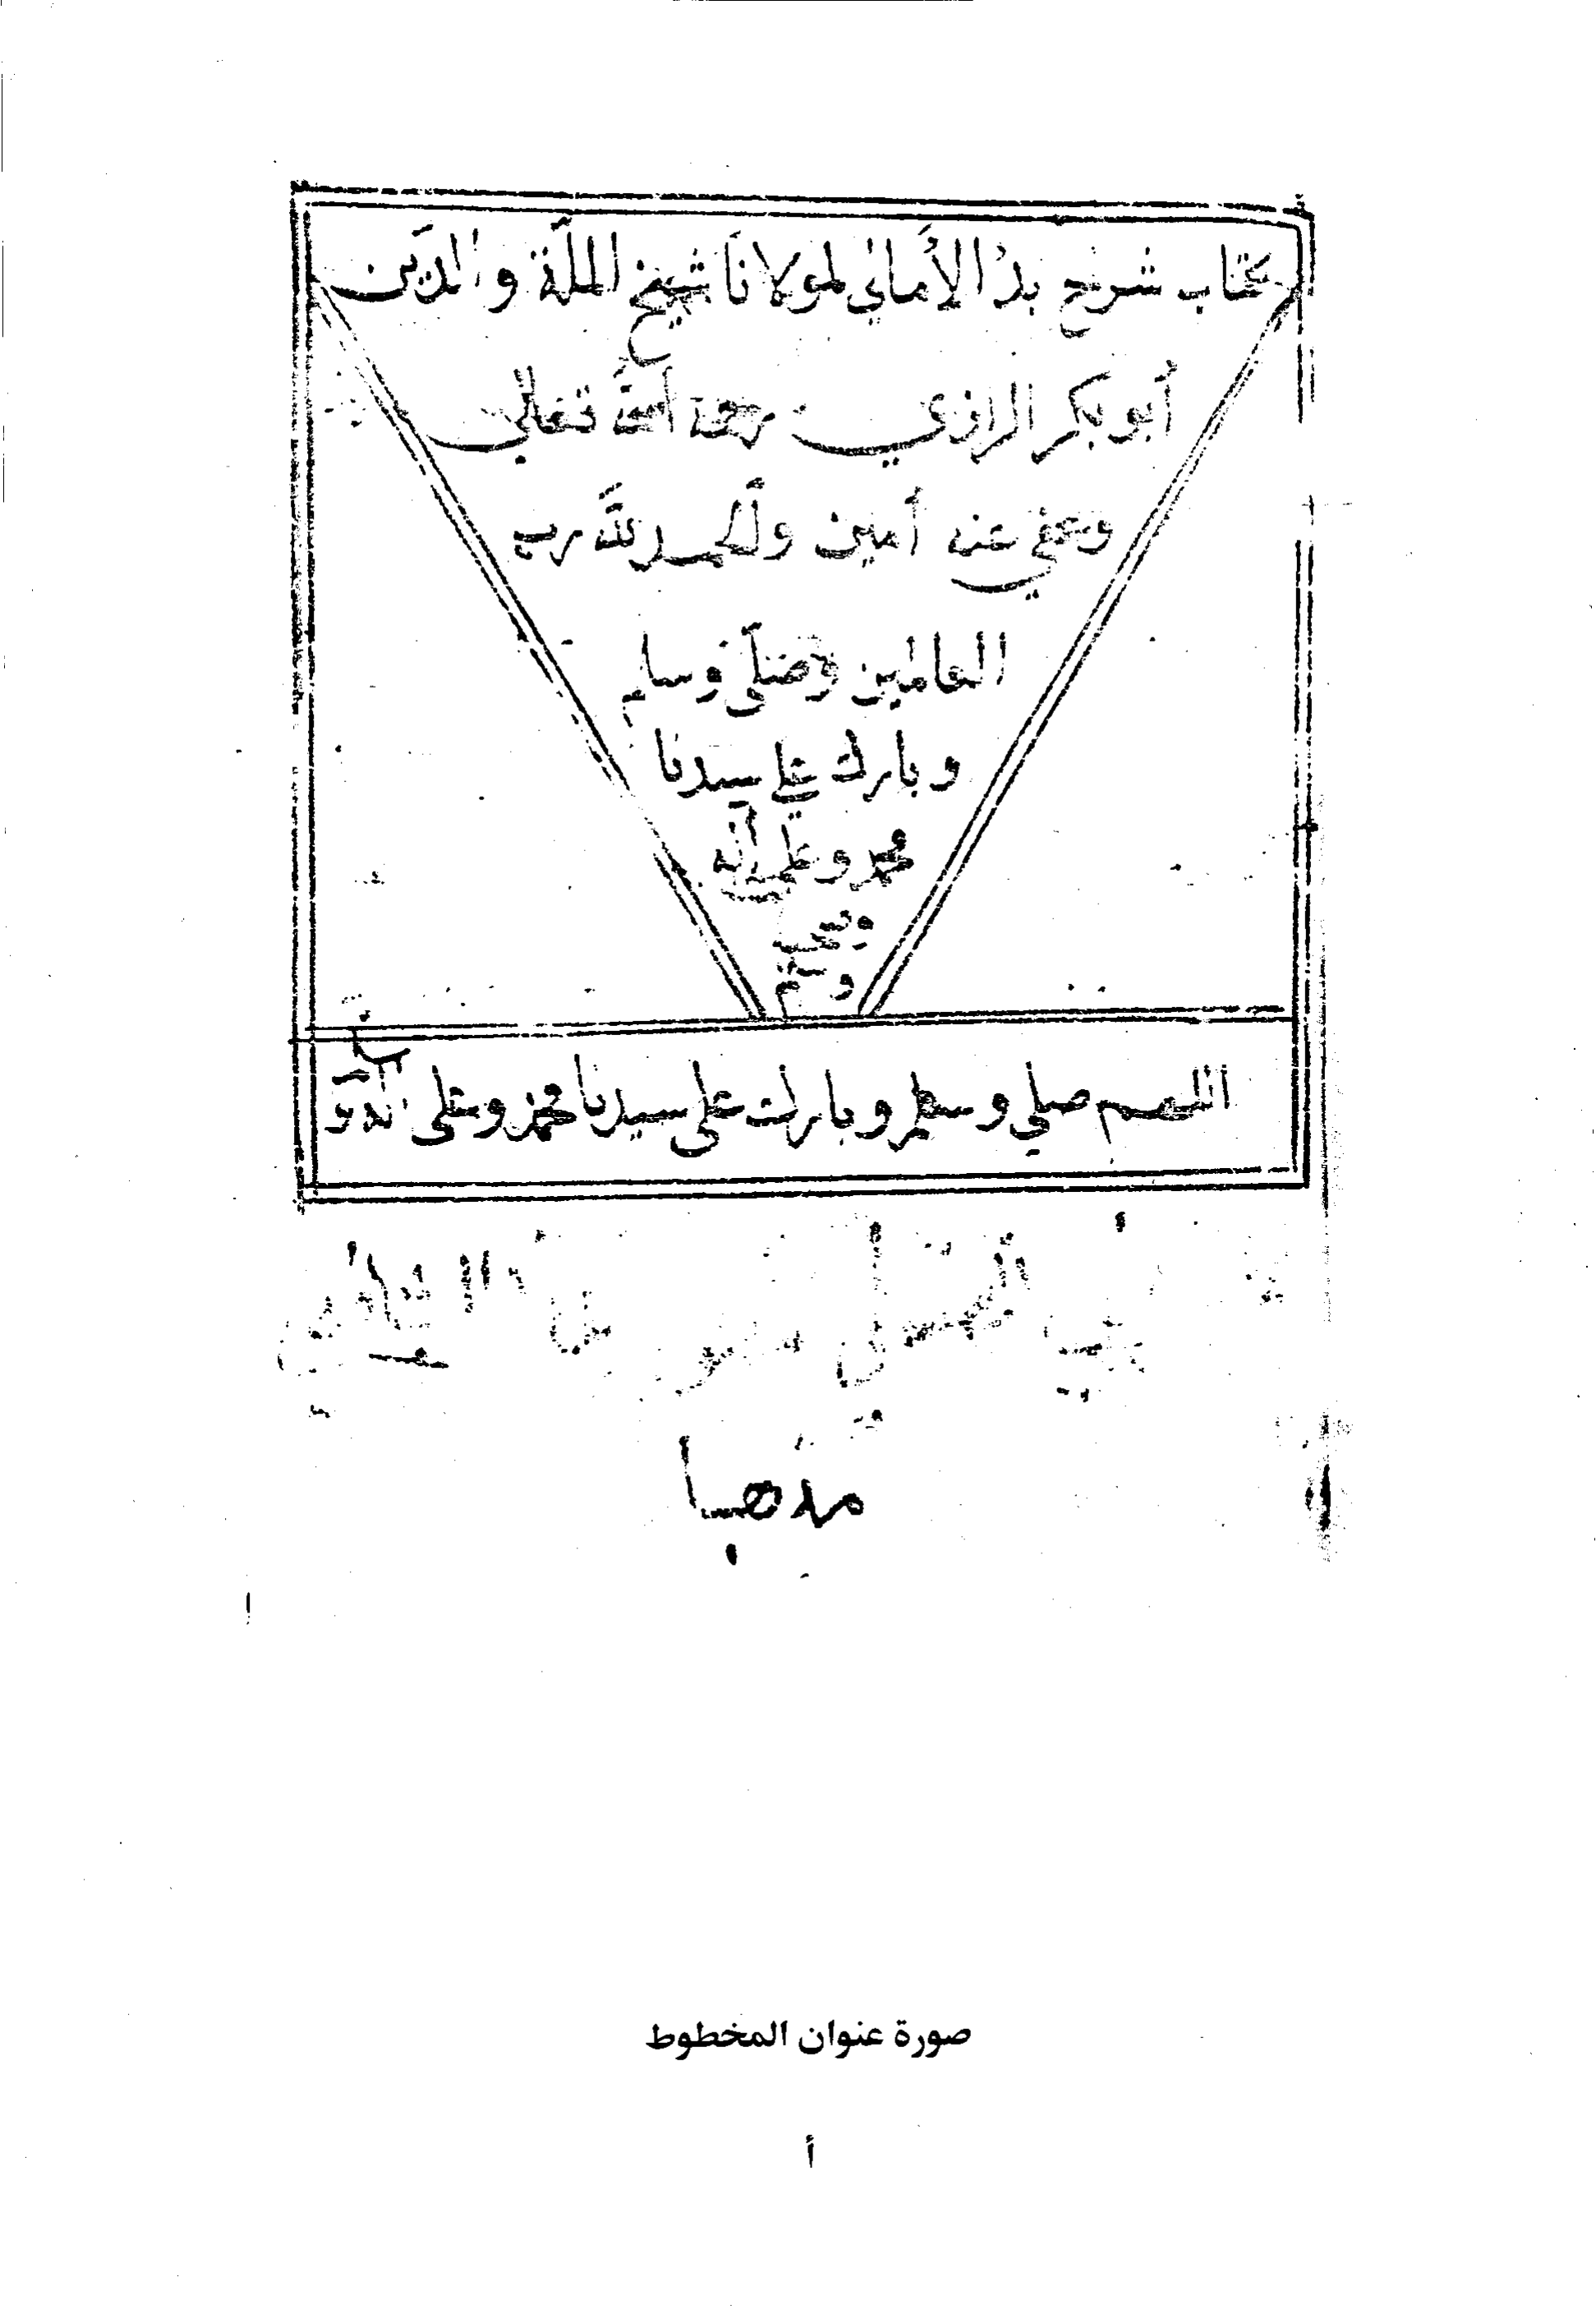 كتاب شرح بدء الأمالي لمولانا شيخ الملّة والدّين
أبو بكر الرازي رحمة الله تعالى
وعفي عنه أمين والحمد لله رب
العالمين وصلّى وسلم
وبارك على سيدنا
محمد وعلى آله
وصحبه
وسلم
اللهم صلي وسلم وبارك على سيدنا محمد وعلى آله و
مذهبا
صورة عنوان المخطوط
أ